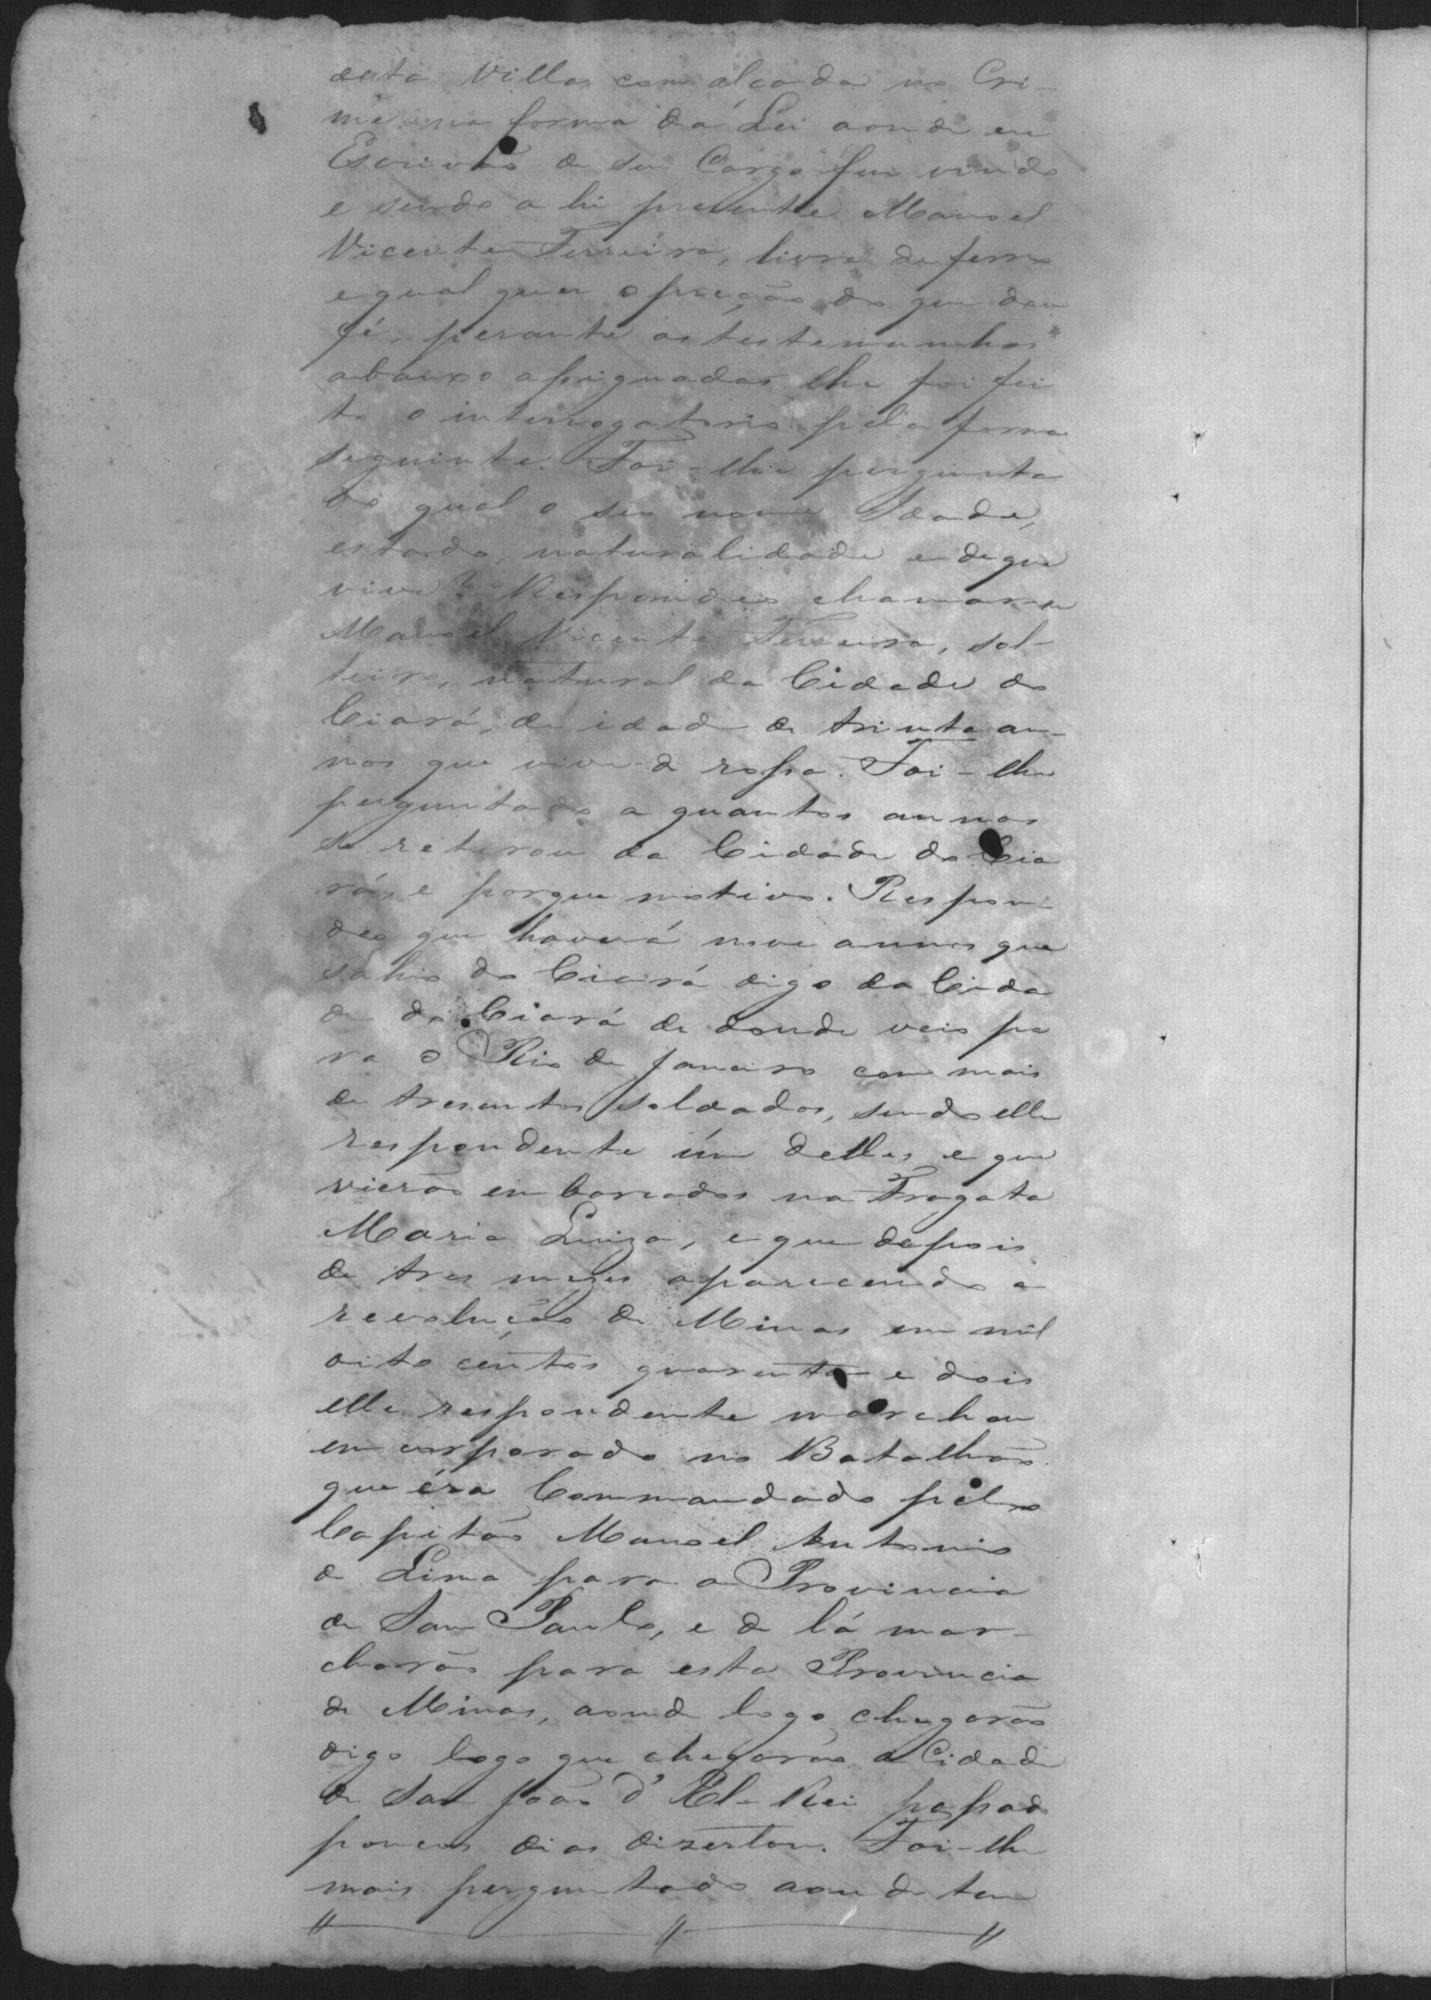 desta Villa com alçada no Cri-
me na forma da Lei aonde eu
Escrivão de seu Cargo fui vindo
e sendo a hi prezente Manoel
Vicente Ferreira, livre de ferros
e qual quer opreção do que dou
fé, perante as testemunhas
abaixo assignadas lhe foi fei
to o interrogatorio pela forma
seguinte. Foi-lhe pergunta
do qual o seu nome Idade,
estado, naturalidade e de que
vive? Respondeo chamar-se
Manoel Vicente Ferreira, sol-
teiro, natural da Cidade do
Ciará, de idade de trinta an-
nos que vive de rossa. Foi-lhe
perguntado a quantos annos
se retirou da Cidade do Cia
rá, e porque motivo. Respon-
deo que haverá nove annos que
sahio do Ciará digo da Cida
de do Ciará de donde veio pa
ra o Rio de Janeiro com mais
de tresentos soldados, sendo elle
respondente úm delles e que
vierão embarcados na Fragata
Maria Luiza, e que depois
de tres mezes aparecendo a
revolução de Minas em mil
oito centos quarenta e dois
elle respondente marchou
em corporado no Batalhão
que éra Commandado pelo
Capitão Manoel Antonio
de Lima para a Provincia
de Sam Paulo, e de lá mar-
charão para esta Provincia
de Minas, aonde logo chegarão
digo logo que chegarão a Cidade
de Sam João d'El-Rei passado
poucos dias dizertou. Foi-lhe
mais perguntado aonde tem